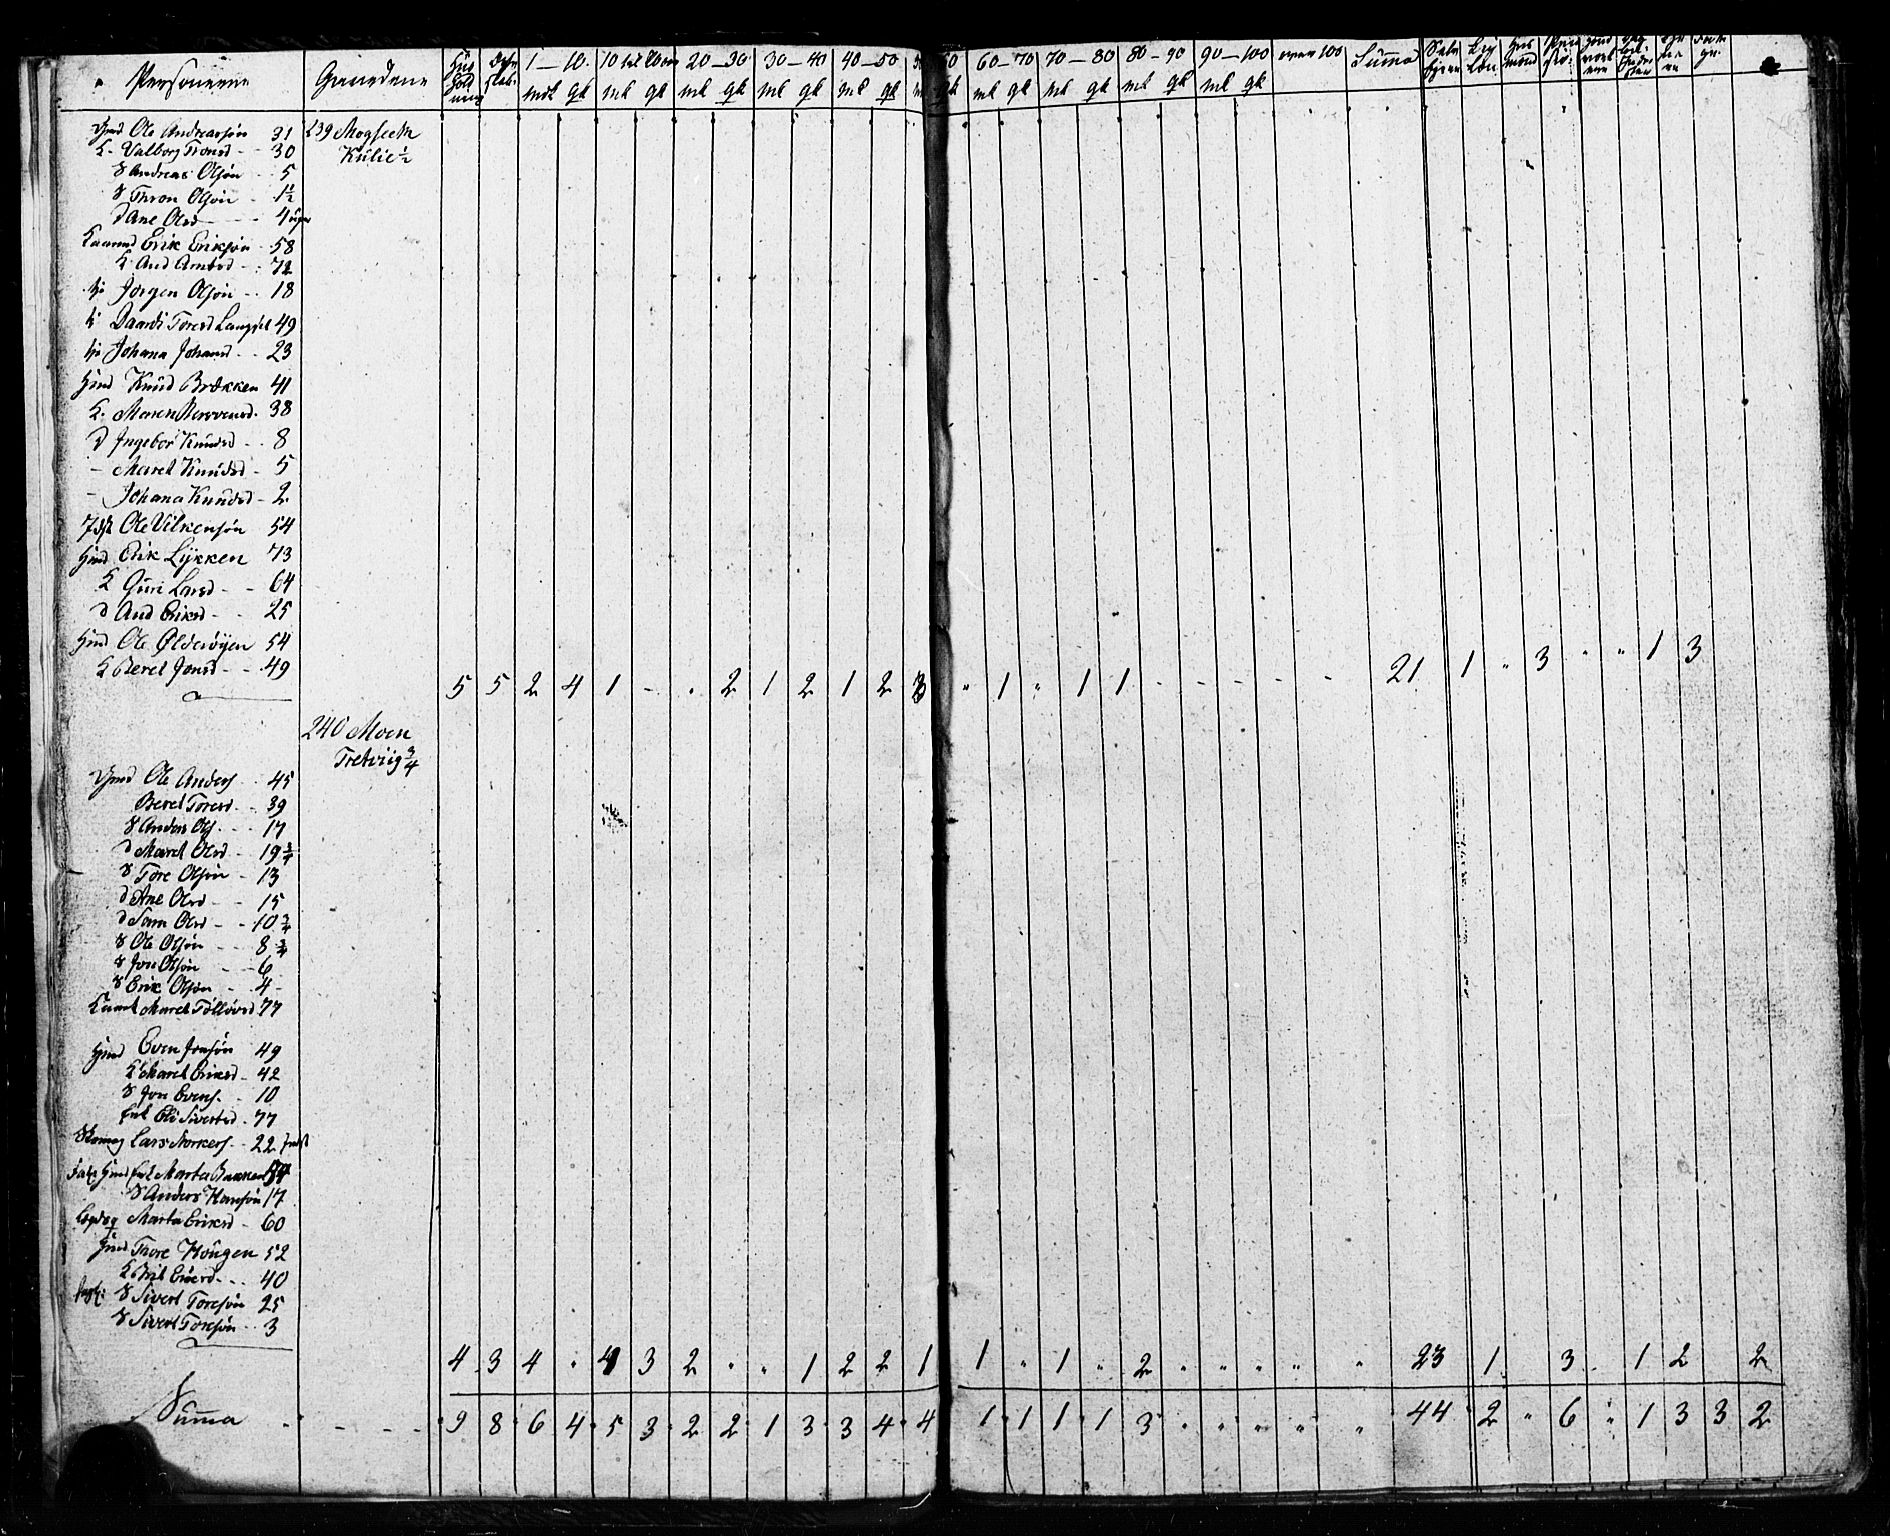 Personerne Gaardene 1 — 10 10 til 20 20 — 30 30 — 40 40 — 50 60 — 70 70 — 80 80 — 90 90 — 100 over 100 Summa
mk qk mk qk mk qk mk qk mk qk mk qk mk qk mk qk mk qk
Ole Andreassøn 31 239 Mogseth
K. Valborg Tronsd 30 Külie ½
S Andreas Olsøn 5
S Thron Olsøn 1½
d Ane Olsd 4 uger
Erik Eriksøn 58
K And Arntsd 72
Jørgen Olsøn 18
Toresd 49
Johana Johansd 23
Hmd Knud Brækken 41
K. Maren 38
D Ingebor Knudsd 8
– Maret Knudsd 5
– Johana Knudsd 2
Ole Vilkensøn 54
Hmd Erik Lÿkken 73
K Guri Larsd 64
d And Eriksd 25
Hmd Ole Olderøyen 54
K Beret Jonsd 49
5 5 2 4 1 - " 2 1 2 1 2 " 1 " 1 1 - - - - - 21 1 " 3 " " 1 3
240 Moen
Tretviig ¾
Ole Anders 45
Beret Toresd 39
S Anders Ols 17
d Maret Olsd 19 ¾
S Tore Olsøn 13
d Ane Olsd 15
d Sara Olsd 10 ¾
S Ole Olsøn 8 ¾
S Jon Olsøn 6
S Erik Olsøn 4
Maret 77
Hmd Even Jonsøn 49
K Maret Eriksd 42
S Jon Evens 10
Enk Eli Sivertsd 77
Lars 22
Hmd Enk Marta Bakken
S Anders Hansøn 17
Marta Eriksd 60
Hmd Thore Hougen 52
K Brit 40
S Sivert Toresøn 25
S Sivert Toresøn 3
4 3 4 " 4 3 2 " " 1 2 2 1 1 " 1 " 2 " " " " " 23 1 3 1 2 2
Summa 9 8 6 4 5 3 2 2 1 3 3 4 4 1 1 1 1 3 " " " " " 44 2 " 6 " 1 3 3 2